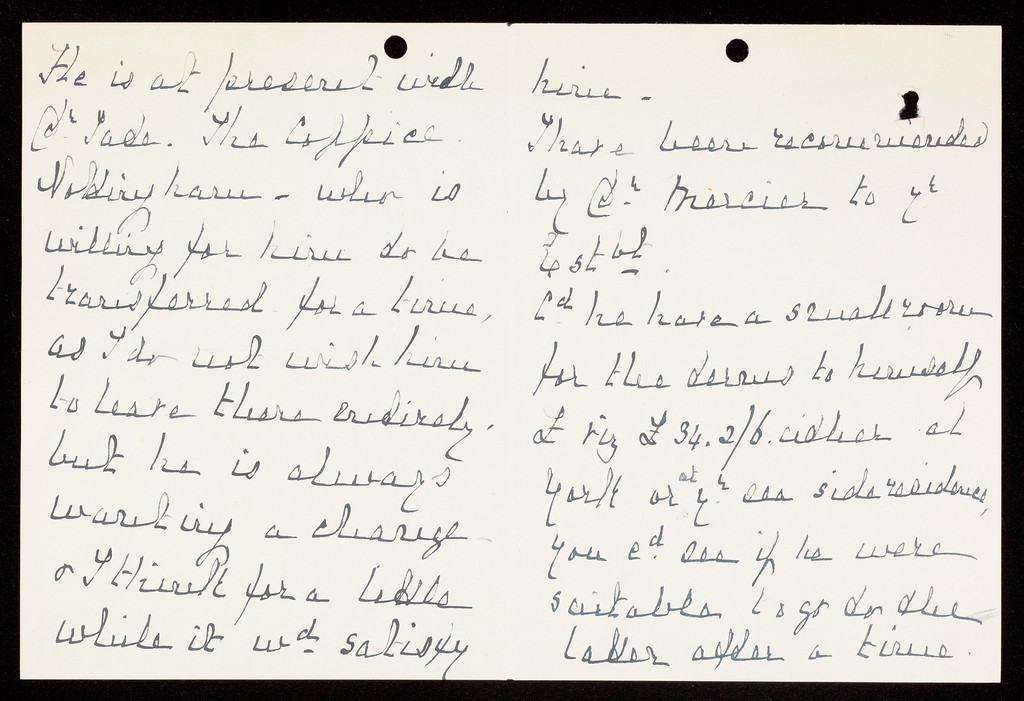 He is at present with
Dr Tate. The Coppice.
Nottingham - who is
willing for him to be
transferred for a time,
as I do not wish him
to leave there entirely.
but he is always
wanting a change
& I think for a little
while it wd satisfy
him -
I have been recommended
by Dr Mercier to yr
Estbt.
Cd he have a small room
for the terms to himself
viz £34.2/6. either at
York or at yr sea side residence,
you cd see if he were
suitable to go to the
latter after a time.